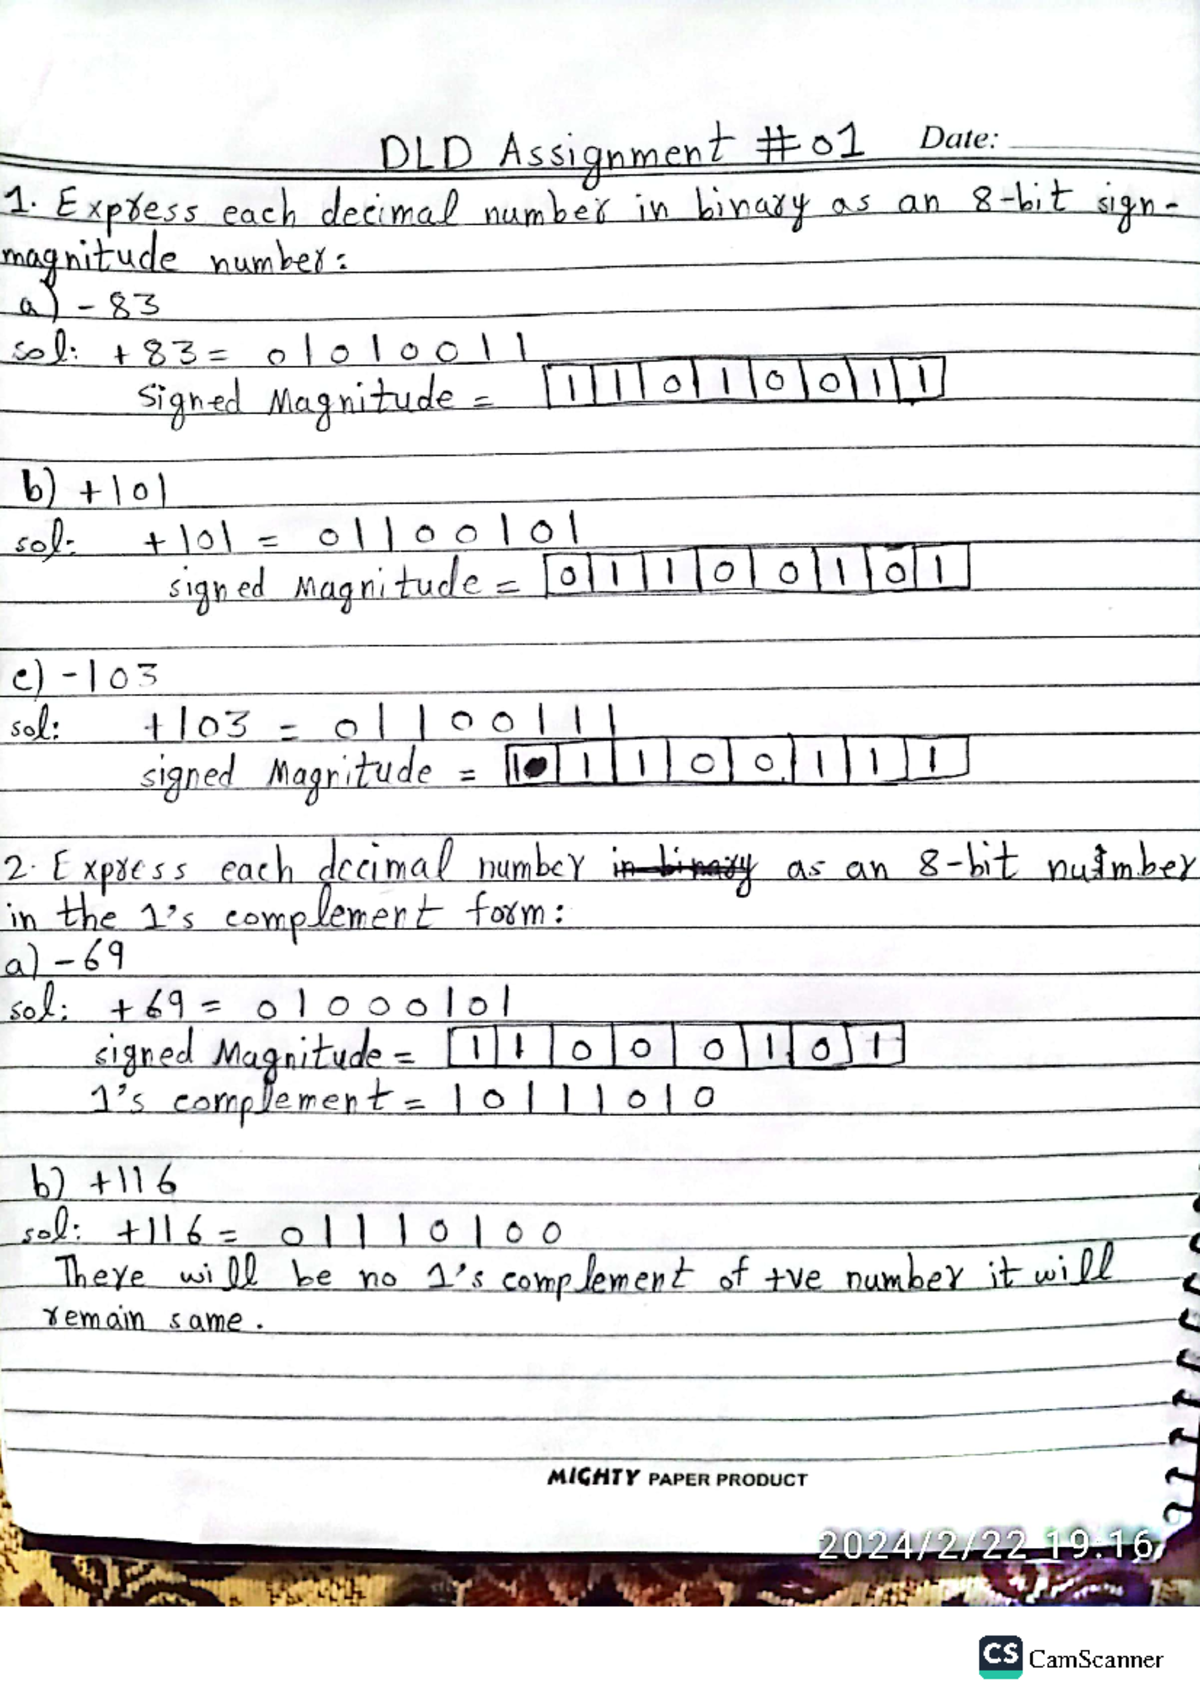 DLD Assignment #01 Date:
1. Express each decimal number in binary as an 8-bit sign-
magnitude number:
a) -83
sol: +83 = 01010011
Signed Magnitude = 1 1 0 1 0 0 1 1
b) +101
sol: +101 = 01100101
signed Magnitude = 0 1 1 0 0 1 0 1
c) -103
sol: +103 = 01100111
signed Magnitude = 1 1 1 0 0 1 1 1
2. Express each decimal number in binary as an 8-bit number
in the 1's complement form:
a) -69
sol: +69 = 01000101
signed Magnitude = 1 1 0 0 0 1 0 1
1's complement = 10111010
b) +116
sol: +116 = 01110100
There will be no 1's complement of +ve number it will
remain same.
MIGHTY PAPER PRODUCT
2024/2/22 19:16
CS CamScanner